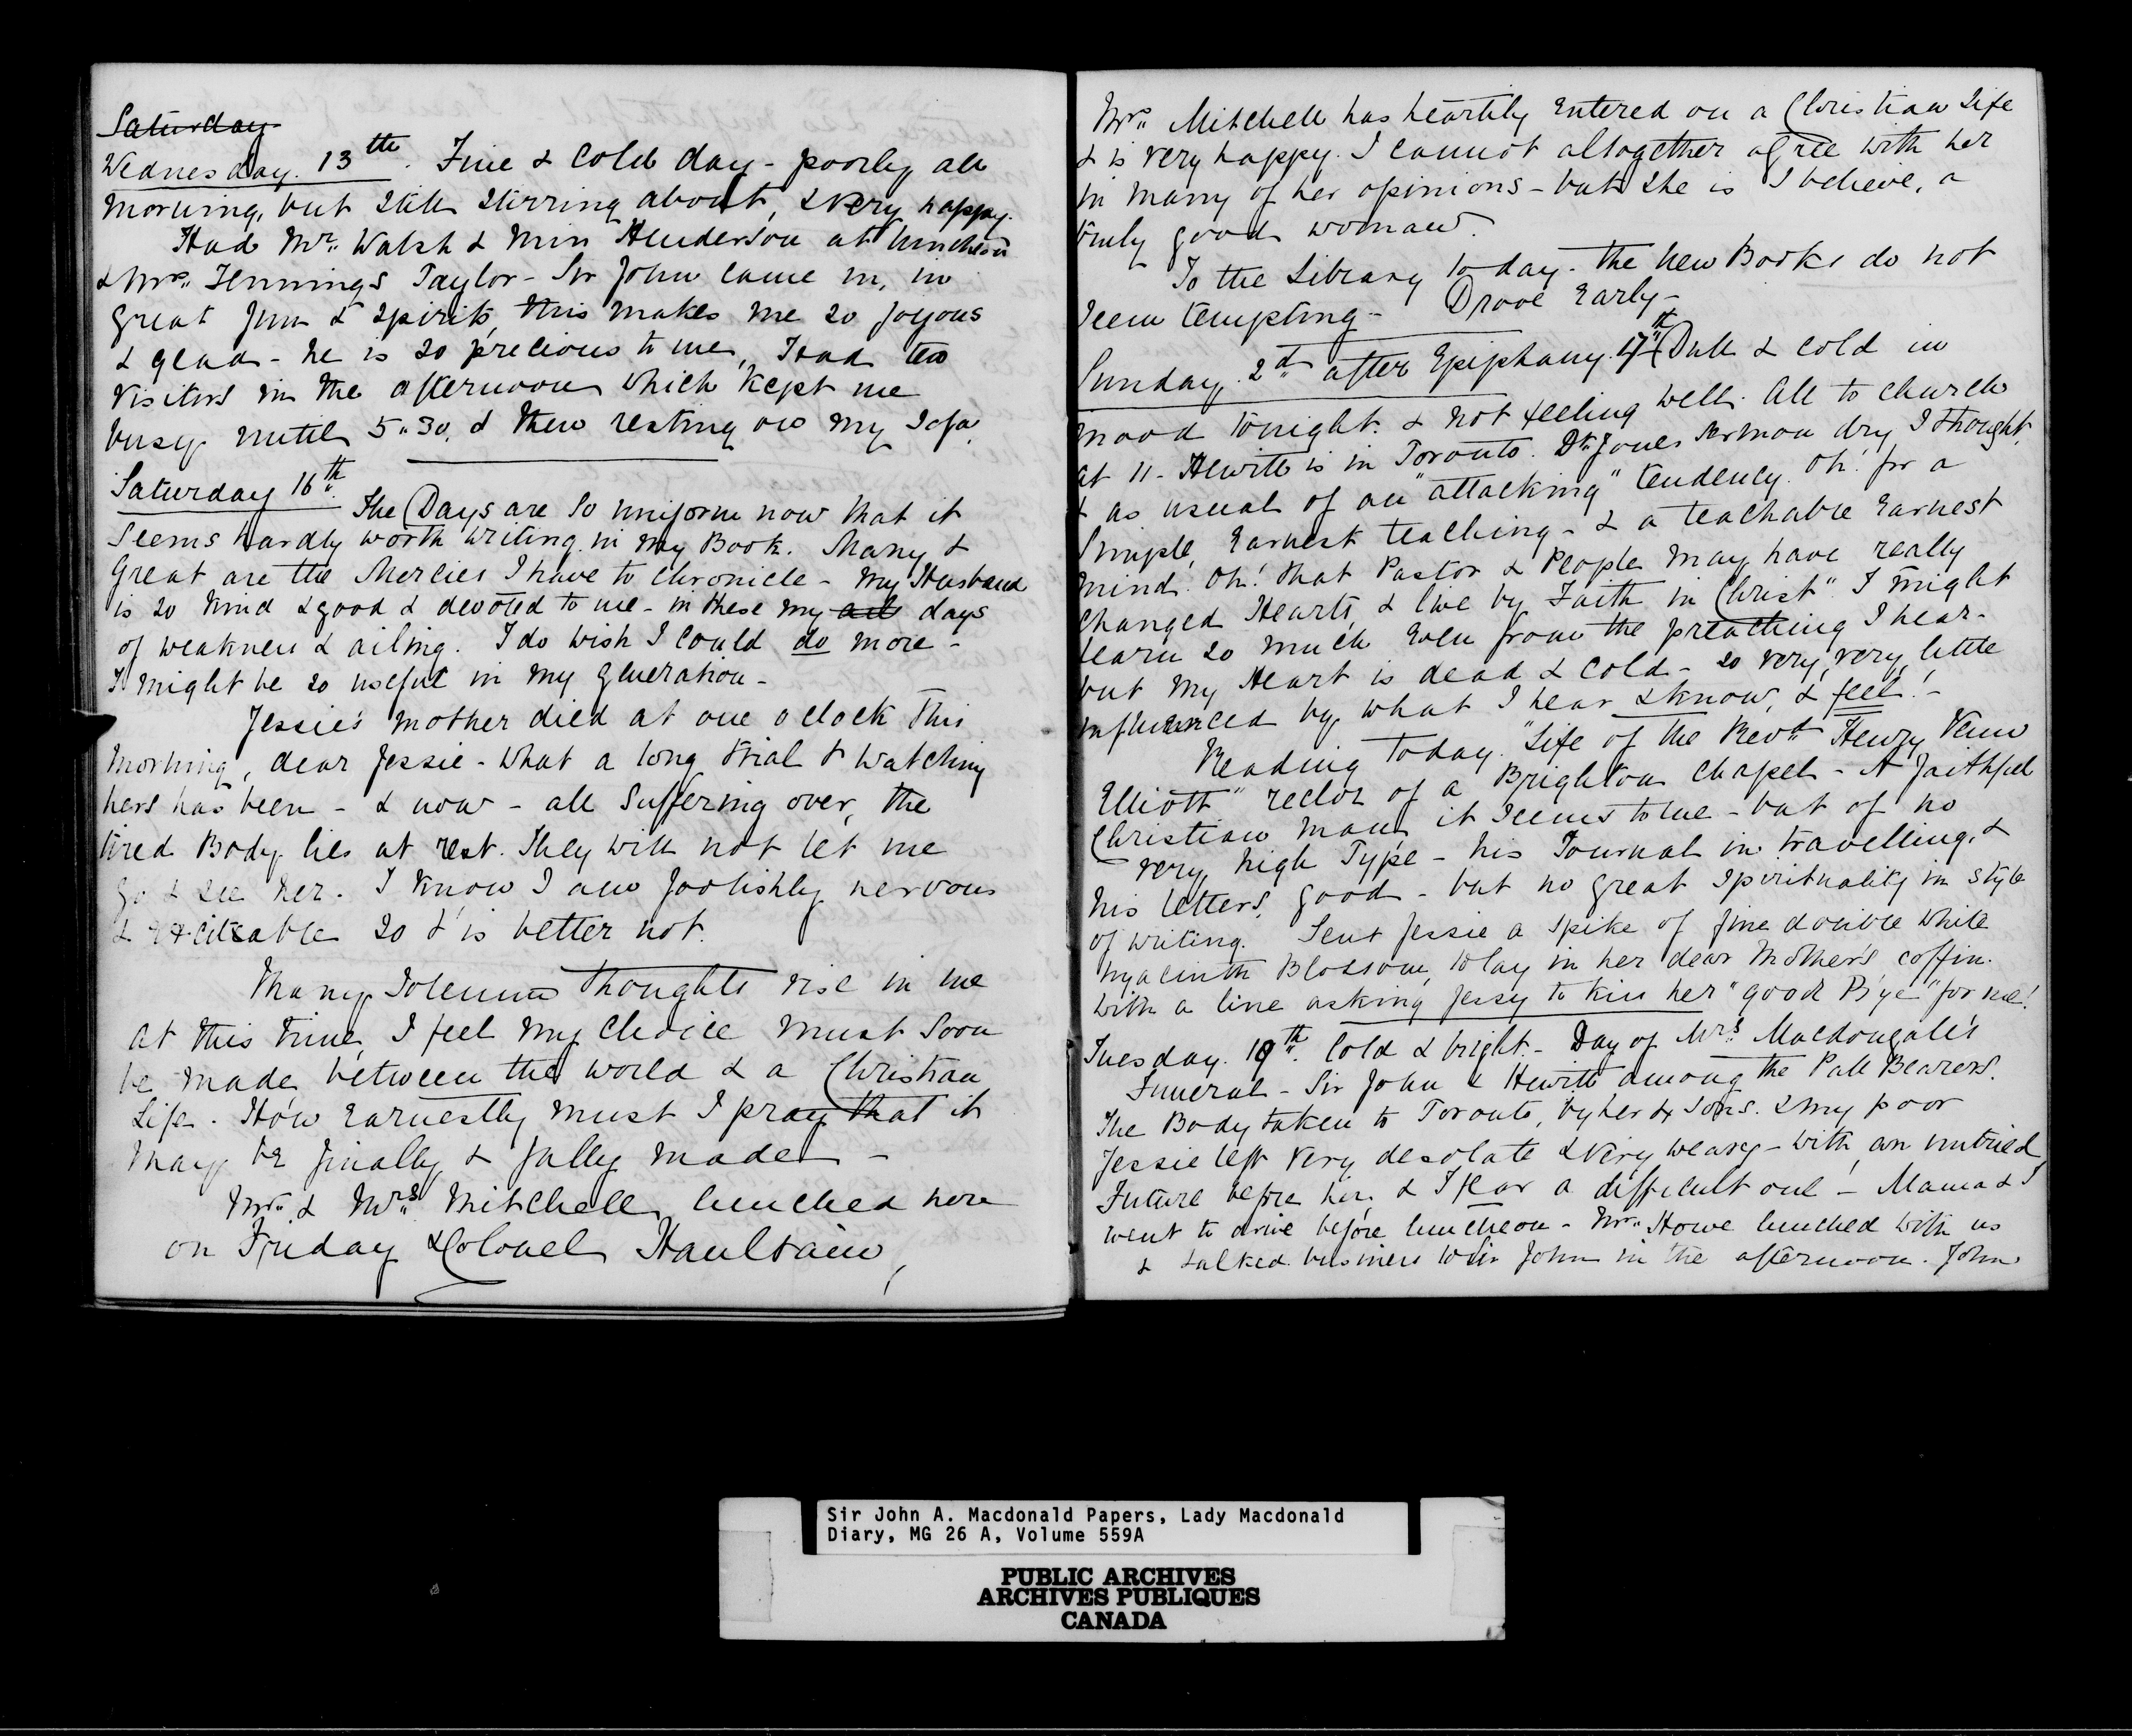 Saturday
Wednesday. 13th. Fine & cold day - poorly all
morning, but still stirring about, & very happy.
Had Mr. Walsh & Miss Henderson at luncheon
& Mrs. Fennings Taylor - Sir John came in, in
great fun & spirits, this makes me so joyous
& glad - he is so precious to me, Had ten
visitors in the afternoon which kept me
busy until 5.30, & then resting on my sofa.
Saturday 16th. The Days are so uniform now that it
seems hardly worth writing in my Book. Many &
Great are the Mercies I have to chronicle - My Husband
is so kind & good & devoted to me - in these my all days
of weakness & ailing. I do wish I could do more -
I might be so useful in my generation -
Jessie's mother died at one o'clock this
morning, dear Jessie - what a long trial & watching
hers has been - & now - all suffering over, the
tired Body lies at rest. They will not let me
go & see her. I know I am foolishly nervous
& exciteable so t'is better not.
Many solemn thoughts rise in me
at this time, I feel my choice must soon
be made between the world & a Christian
Life. How earnestly must I pray that it
may be finally & fully made -
Mr. & Mrs. Mitchell lunched here
on Friday & Colonel Haultain,
Mrs. Mitchell has heartily entered on a Christian Life
& is very happy. I cannot altogether agree with her
in many of her opinions - but she is I believe, a
truly good woman.
To the Library today - the new Books do not
seem tempting - Drove Early -
Sunday. 2d. after Epiphany. 17th (Dull & cold in
mood tonight. & not feeling well. All to church
at 11 - Hewitt is in Toronto. Dr. Jones sermon dry, I thought,
& as usual of an "attacking" tendency. Oh! for a
simple, earnest teaching - & a teachable earnest
mind. Oh! that Pastor & People may have really
changed Hearts, & live by Faith in Christ". I might
learn so much even from the preaching I hear -
but my Heart is dead & cold - so very, very, little
influenced by what I hear & know, & feel! -
Reading today. "Life of the Revd. Henry Venn
Elliott" rector of a Brighton Chapel - A faithful
Christian man, it seems to me - but of no
very high Type - his Journal in travelling, &
his letters, good - but no great spirituality in style
of writing. Sent Jessie a spike of fine double white
hyacinth Blossom, to lay in her dear Mother's coffin.
with a line asking Jessy to kiss her "good B'ye" for me!
Tuesday. 19th. Cold & bright - Day of Mrs. Macdougall's
Funeral - Sir John & Hewitt among the Pall Bearers.
The Body taken to Toronto, by her 4 sons. & my poor
Jessie left very desolate & very weary - with an untried
Future before her, & I fear a difficult one - Mama & I
went to drive before luncheon - Mr. Howe lunched with us
& talked business to Sir John in the afternoon. John
Sir John A. Macdonald Papers, Lady Macdonald
Diary, MG 26 A, Volume 559A
PUBLIC ARCHIVES
ARCHIVES PUBLIQUES
CANADA